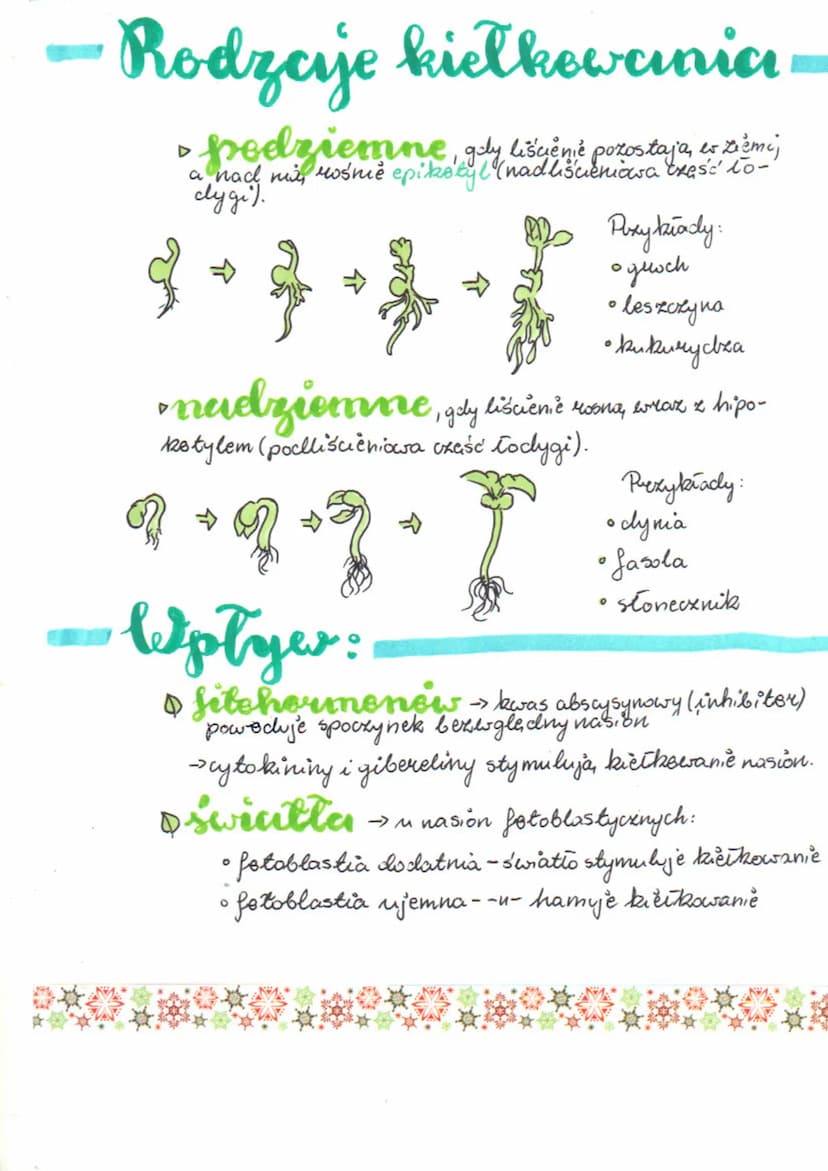 Rodzaje kiełkowania
podziemne, gdy liścienie pozostają w ziemi,
a nad nią rośnie epikotyl (nadliścieniowa część ło-
dygi).
Przykłady:
groch
leszczyna
kukurydza
nadziemne, gdy liścienie rosną wraz z hipo-
kotylem (podliścieniowa część łodygi).
Przykłady:
dynia
fasola
słonecznik
Wpływ:
fitohormonów → kwas abscysynowy (inhibitor)
powoduje spoczynek bezwględny nasion
→ cytokininy i gibereliny stymulują kiełkowanie nasion.
światła → u nasion fotoblastycznych:
fotoblastia dodatnia - światło stymuluje kiełkowanie
fotoblastia ujemna - -u- hamuje kiełkowanie